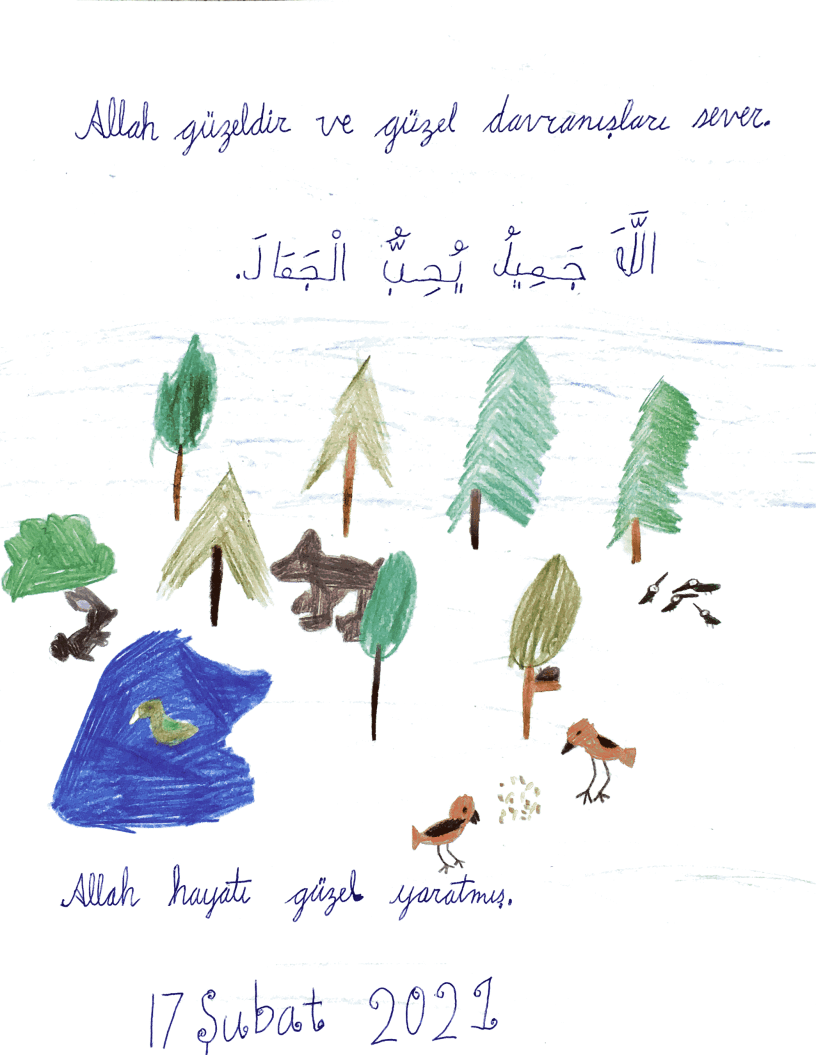 Allah güzeldir ve güzel davranışları sever.
اللَّهَ جَمِيلُ يُحِبُّ الْجَمَالَ.
Allah hayatı güzel yaratmış.
17 Şubat 2021